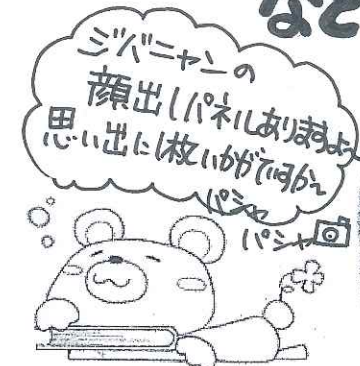 など
ジバニャンの
顔出しパネルありますよ〜
思い出に1枚いかがですか〜
パシャ
パシャ